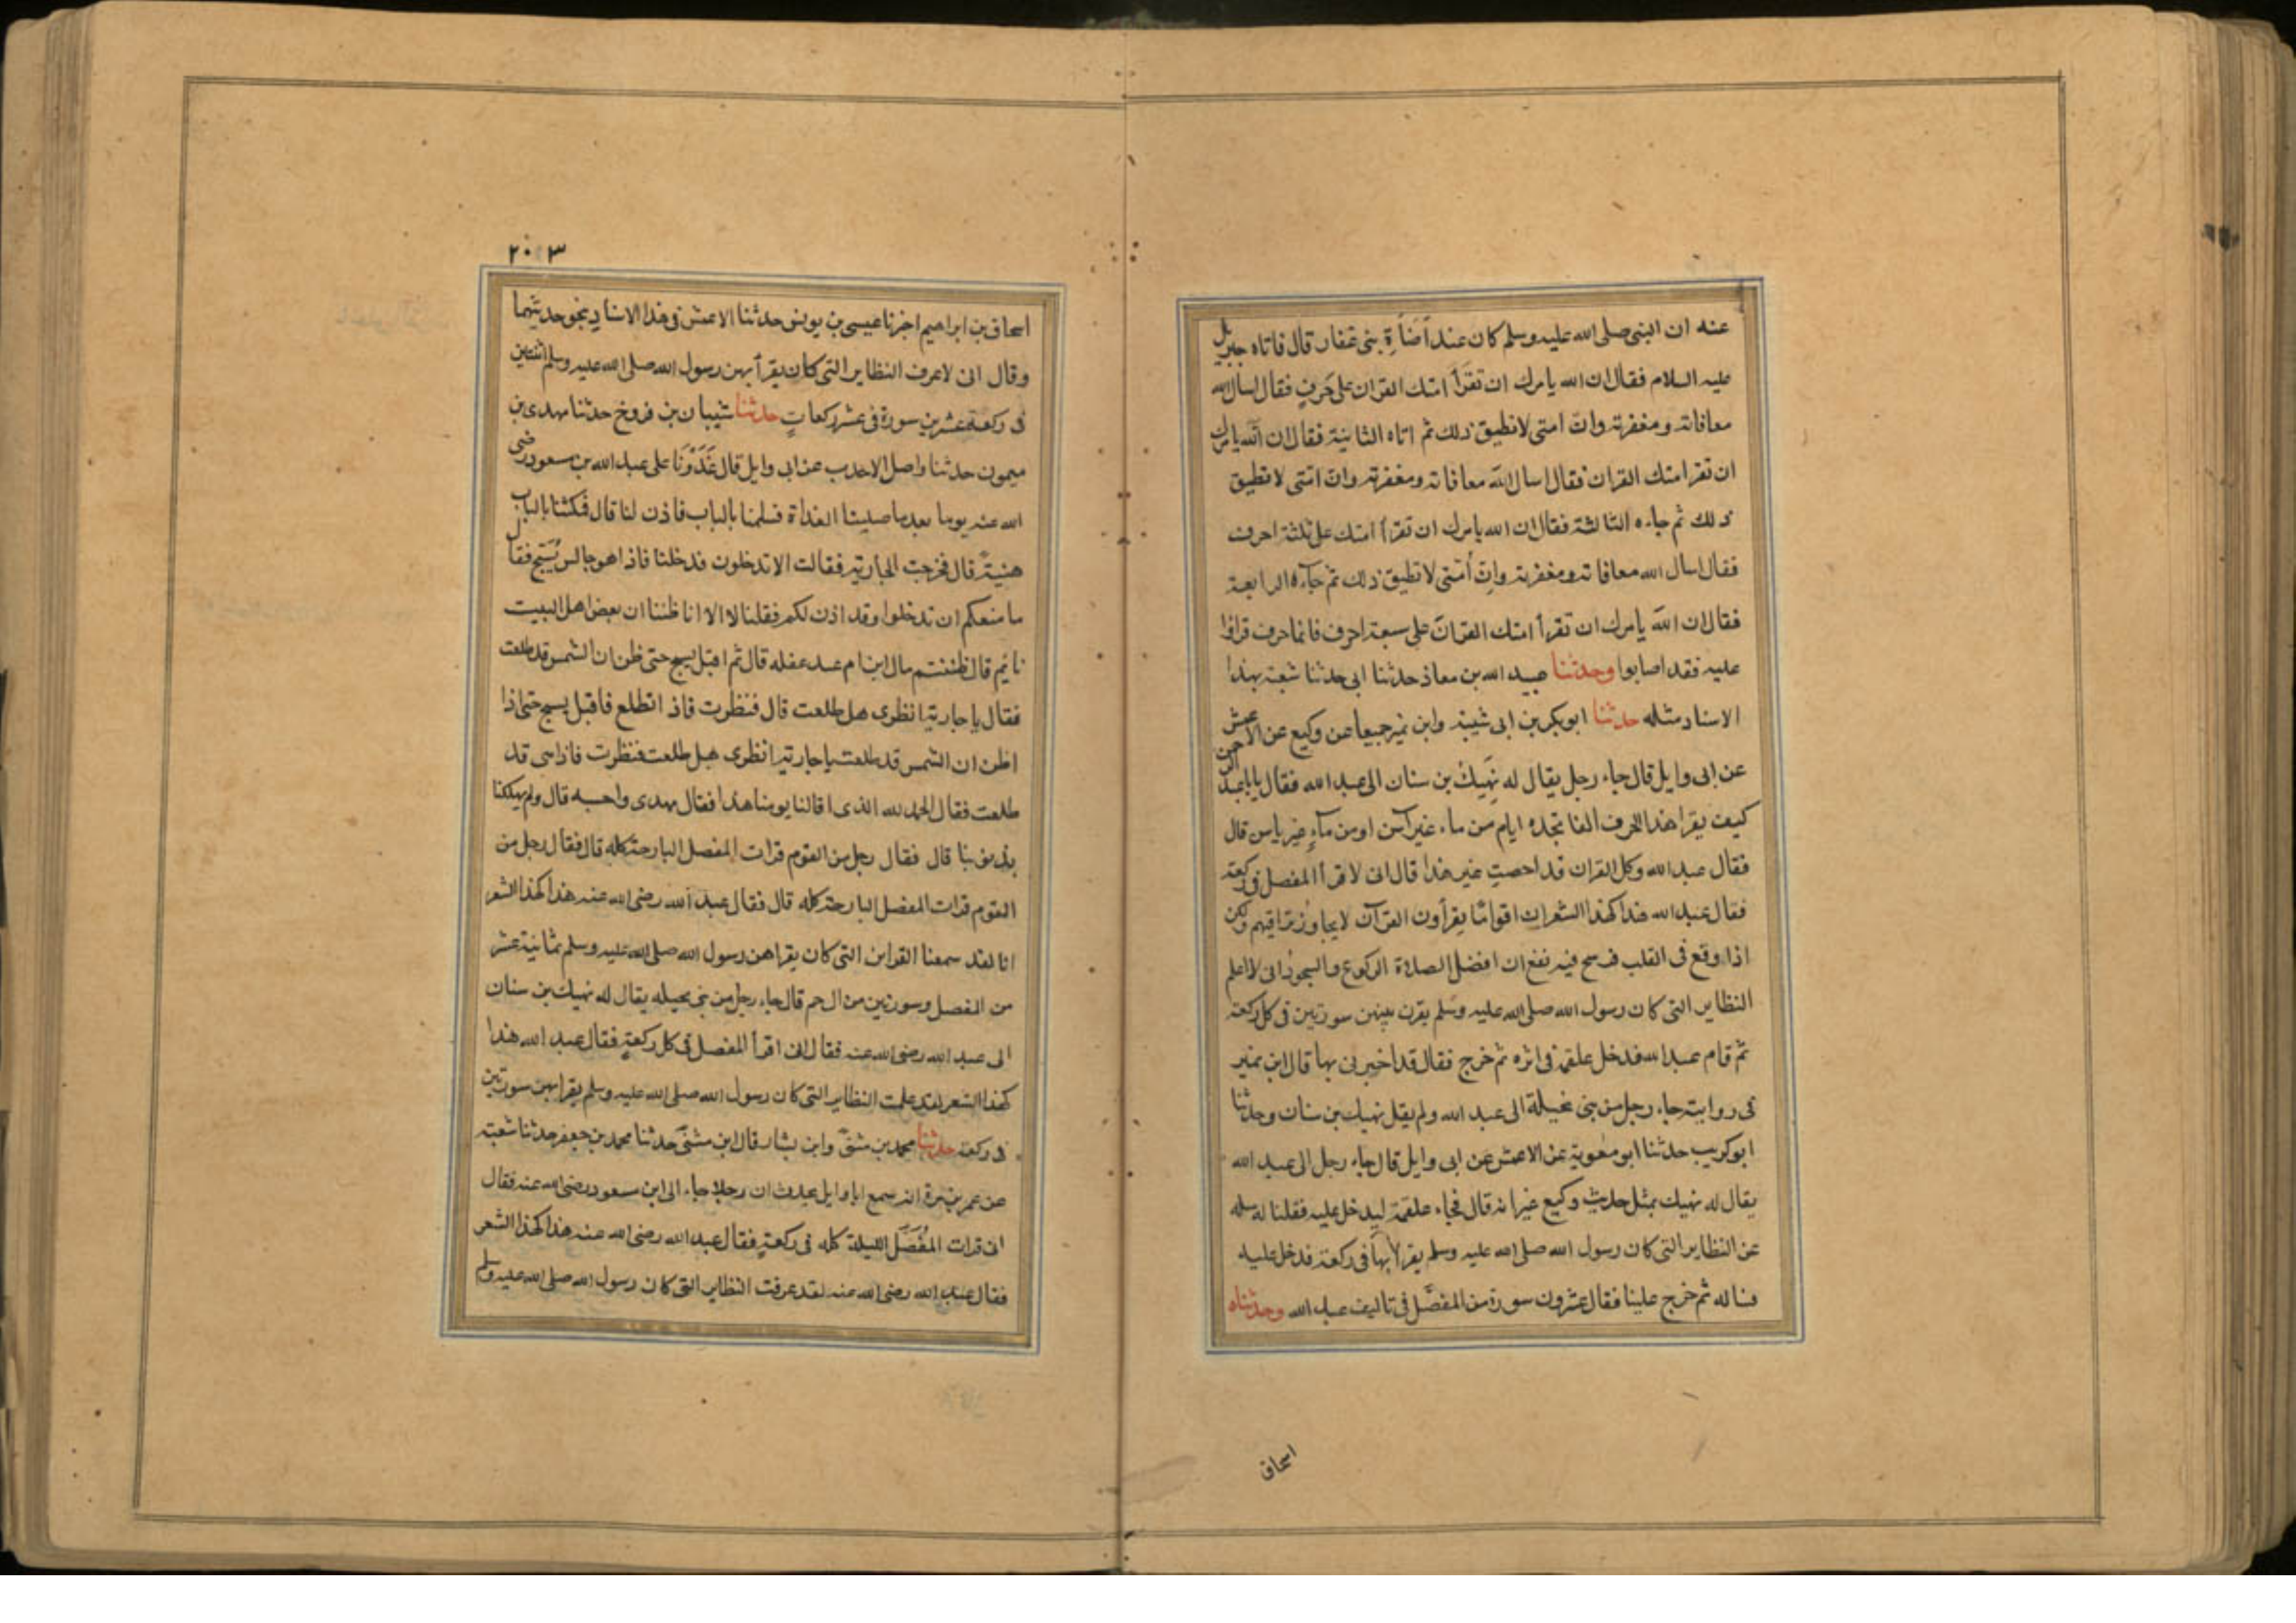 عنه ان النبى صلى الله عليه وسلم كان عند أضاة بنى غفار قال فاتاه جبريل
عليه السلام فقال ان الله يامرك ان تقرأ امتك القران على حرف فقال اسال الله
معافاته ومغفرته وان امتى لا تطيق ذلك ثم اتاه الثانية فقال ان الله يامرك
ان تقرا امتك القران فقال اسال الله معافاته ومغفرته وان امتى لا تطيق
ذلك ثم جاءه الثالثة فقال ان الله يامرك ان تقرأ امتك على ثلثة احرف
فقال اسال الله معافاته ومغفرته وان أمتى لا تطيق ذلك ثم جاءه الرابعة
فقال ان الله يامرك ان تقرأ امتك القران على سبعة احرف فانما حرف قراوا
عليه فقد اصابوا وحدثنا عبيد الله بن معاذ حدثنا ابى حدثنا شعبة بهذا
الاسناد مثله حدثنا ابو بكر بن ابى شيبة وابن نمير جميعا عن وكيع عن الاعمش
عن ابى وايل قال جاء رجل يقال له نهيك بن سنان الى عبد الله فقال يا با عبد الرحمن
كيف يقرا هذا الحرف الفا تجده ايام من ماء غير آسن او من ماء غير ياسن قال
فقال عبد الله وكل القران قد احصيت غير هذا قال انى لاقرأ المفصل فى ركعة
فقال عبد الله هذا كهذ الشعر ان اقواما يقرأون القرآن لا يجاوز تراقيهم ولكن
اذا وقع فى القلب فرسخ فيه نفع ان افضل الصلاة الركوع والسجود انى لا اعلم
النظاير التى كان رسول الله صلى الله عليه وسلم يقرن بينهن سورتين فى كل ركعة
ثم قام عبد الله فدخل علقمة فى اثره ثم خرج فقال قد اخبرنى بها قال ابن نمير
فى روايته جاء رجل من بنى بحيلة الى عبد الله ولم يقل نهيك بن سنان وحدثنا
ابو كريب حدثنا ابو معوية عن الاعمش عن ابى وايل قال جاء رجل الى عبد الله
يقال له نهيك بمثل حديث وكيع غير انه قال فجاء علقمة ليدخل عليه فقلنا له سله
عن النظاير التى كان رسول الله صلى الله عليه وسلم يقرأ بها فى ركعة فدخل عليه
فساله ثم خرج علينا فقال عشرون سورة من المفصل فى تاليف عبد الله وحدثناه
اسحاق
٢٠٣
اسحاق بن ابراهيم اخبرنا عيسى بن يونس حدثنا الاعمش فى هذا الاسناد بنحو حديثهما
وقال انى لاعرف النظاير التى كان يقرأ بهن رسول الله صلى الله عليه وسلم اثنتين
فى ركعة عشرين سورة فى عشر ركعات حدثنا شيبان بن فروخ حدثنا مهدى بن
ميمون حدثنا واصل الاحدب عن ابى وايل قال غدونا على عبد الله بن مسعود رضى
الله عنه يوما بعد ما صلينا الغداة فسلمنا بالباب فاذن لنا قال فمكثنا بالباب
هنية قال فخرجت الجارية فقالت الا تدخلون فدخلنا فاذا هو جالس يسبح فقال
ما منعكم ان تدخلوا وقد اذن لكم فقلنا لا الا انا ظننا ان بعض اهل البيت
نايم قال ظننتم بال ابن ام عبد غفله قال ثم اقبل يسبح حتى ظن ان الشمس قد طلعت
فقال يا جارية انظرى هل طلعت قال فنظرت فاذ اتطلع فاقبل يسبح حتى اذا
اظن ان الشمس قد طلعت يا جارية انظرى هل طلعت فنظرت فاذا هى قد
طلعت فقال الحمد لله الذى اقالنا يومنا هذا فقال مهدى واحسبه قال ولم يهلكنا
بذنوبنا قال فقال رجل من القوم قرات المفصل البارحة كله قال فقال رجل من
القوم قرات المفصل البارحة كله قال فقال عبد الله رضى الله عنه هذا كهذا الشعر
انا لقد سمعنا القراين التى كان يقراهن رسول الله صلى الله عليه وسلم ثمانية عشر
من المفصل وسورتين من ال حم قال جاء رجل من بنى بحيله يقال له نهيك بن سنان
الى عبد الله رضى الله عنه فقال انى اقرأ المفصل فى كل ركعة فقال عبد الله هذا
كهذا الشعر لقد علمت النظاير التى كان رسول الله صلى الله عليه وسلم يقرا بهن سورتين
فى ركعة حدثنا محمد بن مثنى وابن بشار قال ابن مثنى حدثنا محمد بن جعفر حدثنا شعبة
عن عمر بن مرة انه سمع ابا وايل يحدث ان رجلا جاء الى ابن مسعود رضى الله عنه فقال
انى قرات المفصل الليلة كله فى ركعة فقال عبد الله رضى الله عنه هذا كهذا الشعر
فقال عبد الله رضى الله عنه لقد عرفت النظاير التى كان رسول الله صلى الله عليه وسلم